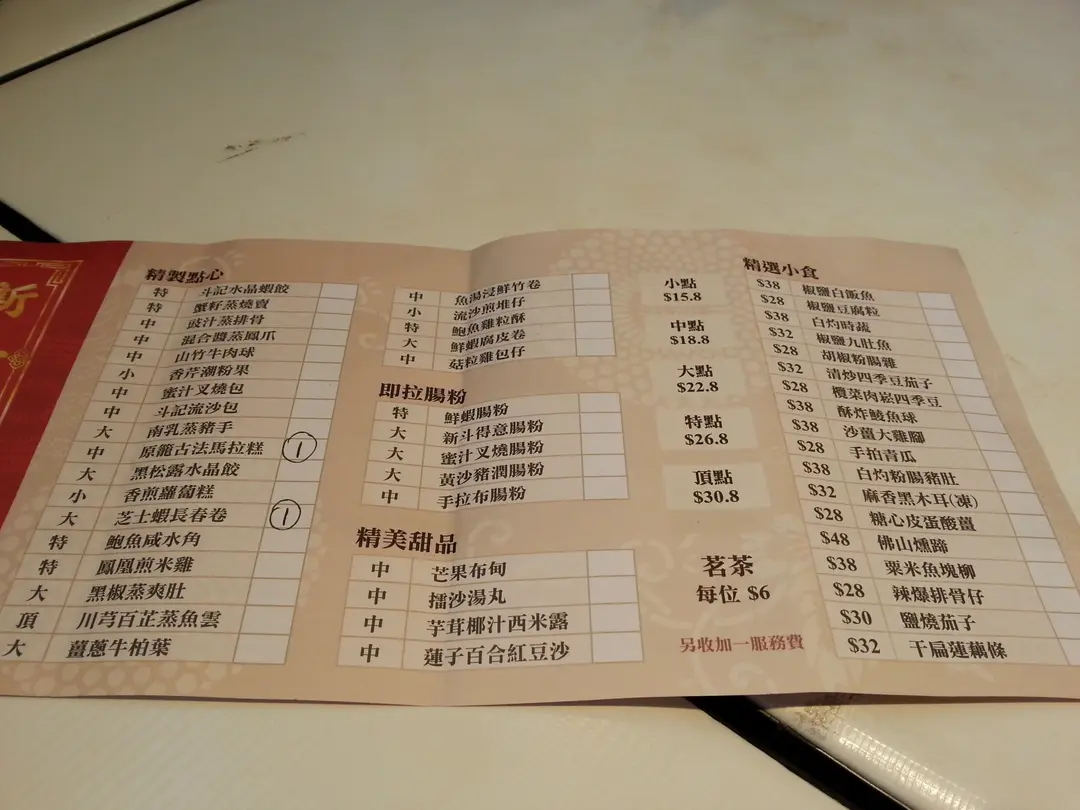 新
精製點心
特 斗記水晶蝦餃
特 蟹籽蒸燒賣
中 豉汁蒸排骨
中 混合醬蒸鳳爪
中 山竹牛肉球
小 香芹潮粉果
中 蜜汁叉燒包
中 斗記流沙包
大 南乳蒸豬手
中 原籠古法馬拉糕 1
大 黑松露水晶餃
小 香煎蘿蔔糕
大 芝士蝦長春卷 1
特 鮑魚咸水角
特 鳳凰煎米雞
大 黑椒蒸爽肚
頂 川芎百芷蒸魚雲
大 薑蔥牛柏葉
中 魚湯浸鮮竹卷
小 流沙煎堆仔
特 鮑魚雞粒酥
大 鮮蝦腐皮卷
中 菇粒雞包仔
即拉腸粉
特 鮮蝦腸粉
大 新斗得意腸粉
大 蜜汁叉燒腸粉
大 黃沙豬潤腸粉
中 手拉布腸粉
精美甜品
中 芒果布甸
中 擂沙湯丸
中 芋茸椰汁西米露
中 蓮子百合紅豆沙
小點
$15.8
中點
$18.8
大點
$22.8
特點
$26.8
頂點
$30.8
茗茶
每位 $6
另收加一服務費
精選小食
$38 椒鹽白飯魚
$28 椒鹽豆腐粒
$38 白灼時蔬
$32 椒鹽九肚魚
$28 胡椒粉腸雜
$32 清炒四季豆茄子
$28 欖菜肉崧四季豆
$38 酥炸鯪魚球
$38 沙薑大雞腳
$28 手拍青瓜
$38 白灼粉腸豬肚
$32 麻香黑木耳(凍)
$28 糖心皮蛋酸薑
$48 佛山燻蹄
$38 粟米魚塊柳
$28 辣爆排骨仔
$30 鹽燒茄子
$32 干扁蓮藕條